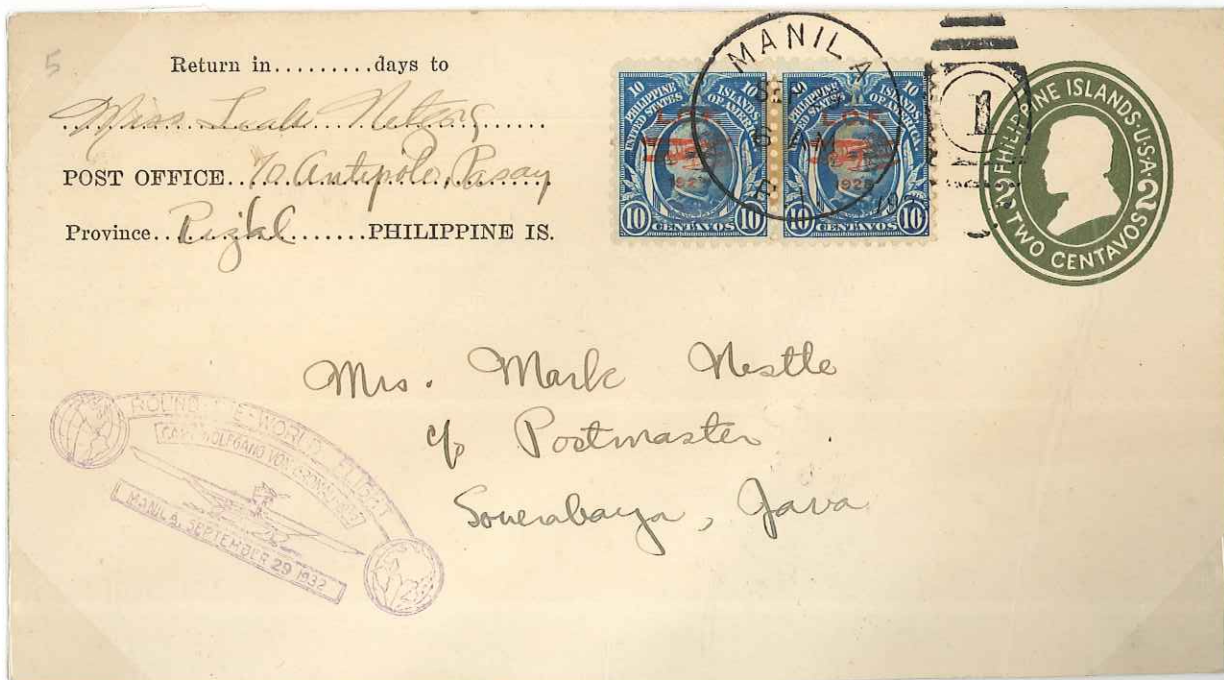 5
Return in.........days to
Miss Leah
POST OFFICE...70 Antipolo, Pasay
Province...Rizal......PHILIPPINE IS.
10 PHILIPPINE ISLANDS 10
UNITED STATES OF AMERICA
L.O.F.
192
10 CENTAVOS 10
10 PHILIPPINE ISLANDS 10
UNITED STATES OF AMERICA
L.O.F.
192
10 CENTAVOS 10
MANILA
SEP
6 AM
P. I.
1
PHILIPPINE ISLANDS·U·S·A·
2 TWO CENTAVOS 2
Mrs. Mark Nestle
c/o Postmaster
Soerabaya, Java
ROUND-THE-WORLD FLIGHT
CAPT. WOLFGANG VON GRONAU
MANILA, SEPTEMBER 29 1932